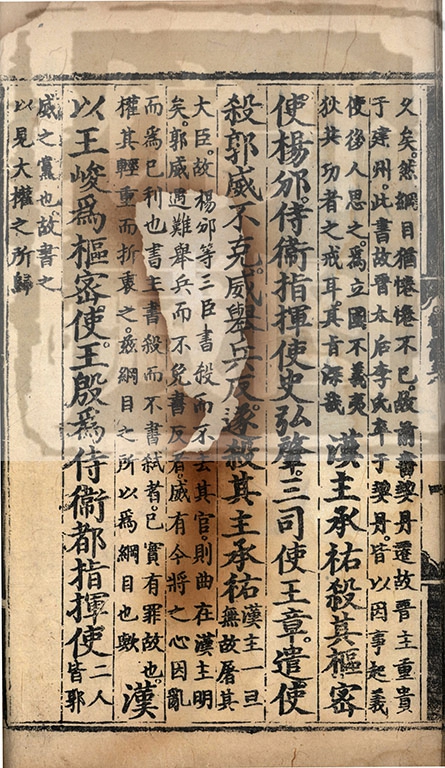 久矣。然綱目猶惓惓不已。故前書契丹遷故晉主重貴
于建州。此書故晉太后李氏卒于契丹。皆以因事起義
使後人思之。爲立國不義夷
狄其功者之戒耳。其旨深哉
漢主承祐殺其樞密
使楊邠。侍衞指揮使史弘肇。三司使王章。遣使
殺郭威不克。威舉兵反。遂殺其主承祐
漢主一旦
無故屠其
大臣。故楊邠等三臣書殺而不去其官。則曲在漢主明
矣。郭威遇難舉兵而不免書反者。威有今將之心因亂
而爲已利也。書主書殺而不書弑者。已實有罪故也。
權其輕重而折衷之。玆綱目之所以爲綱目也歟
漢
以王峻爲樞密使。王殷爲侍衞都指揮使
二人
皆郭
威之黨也。故書之
以見大權之所歸